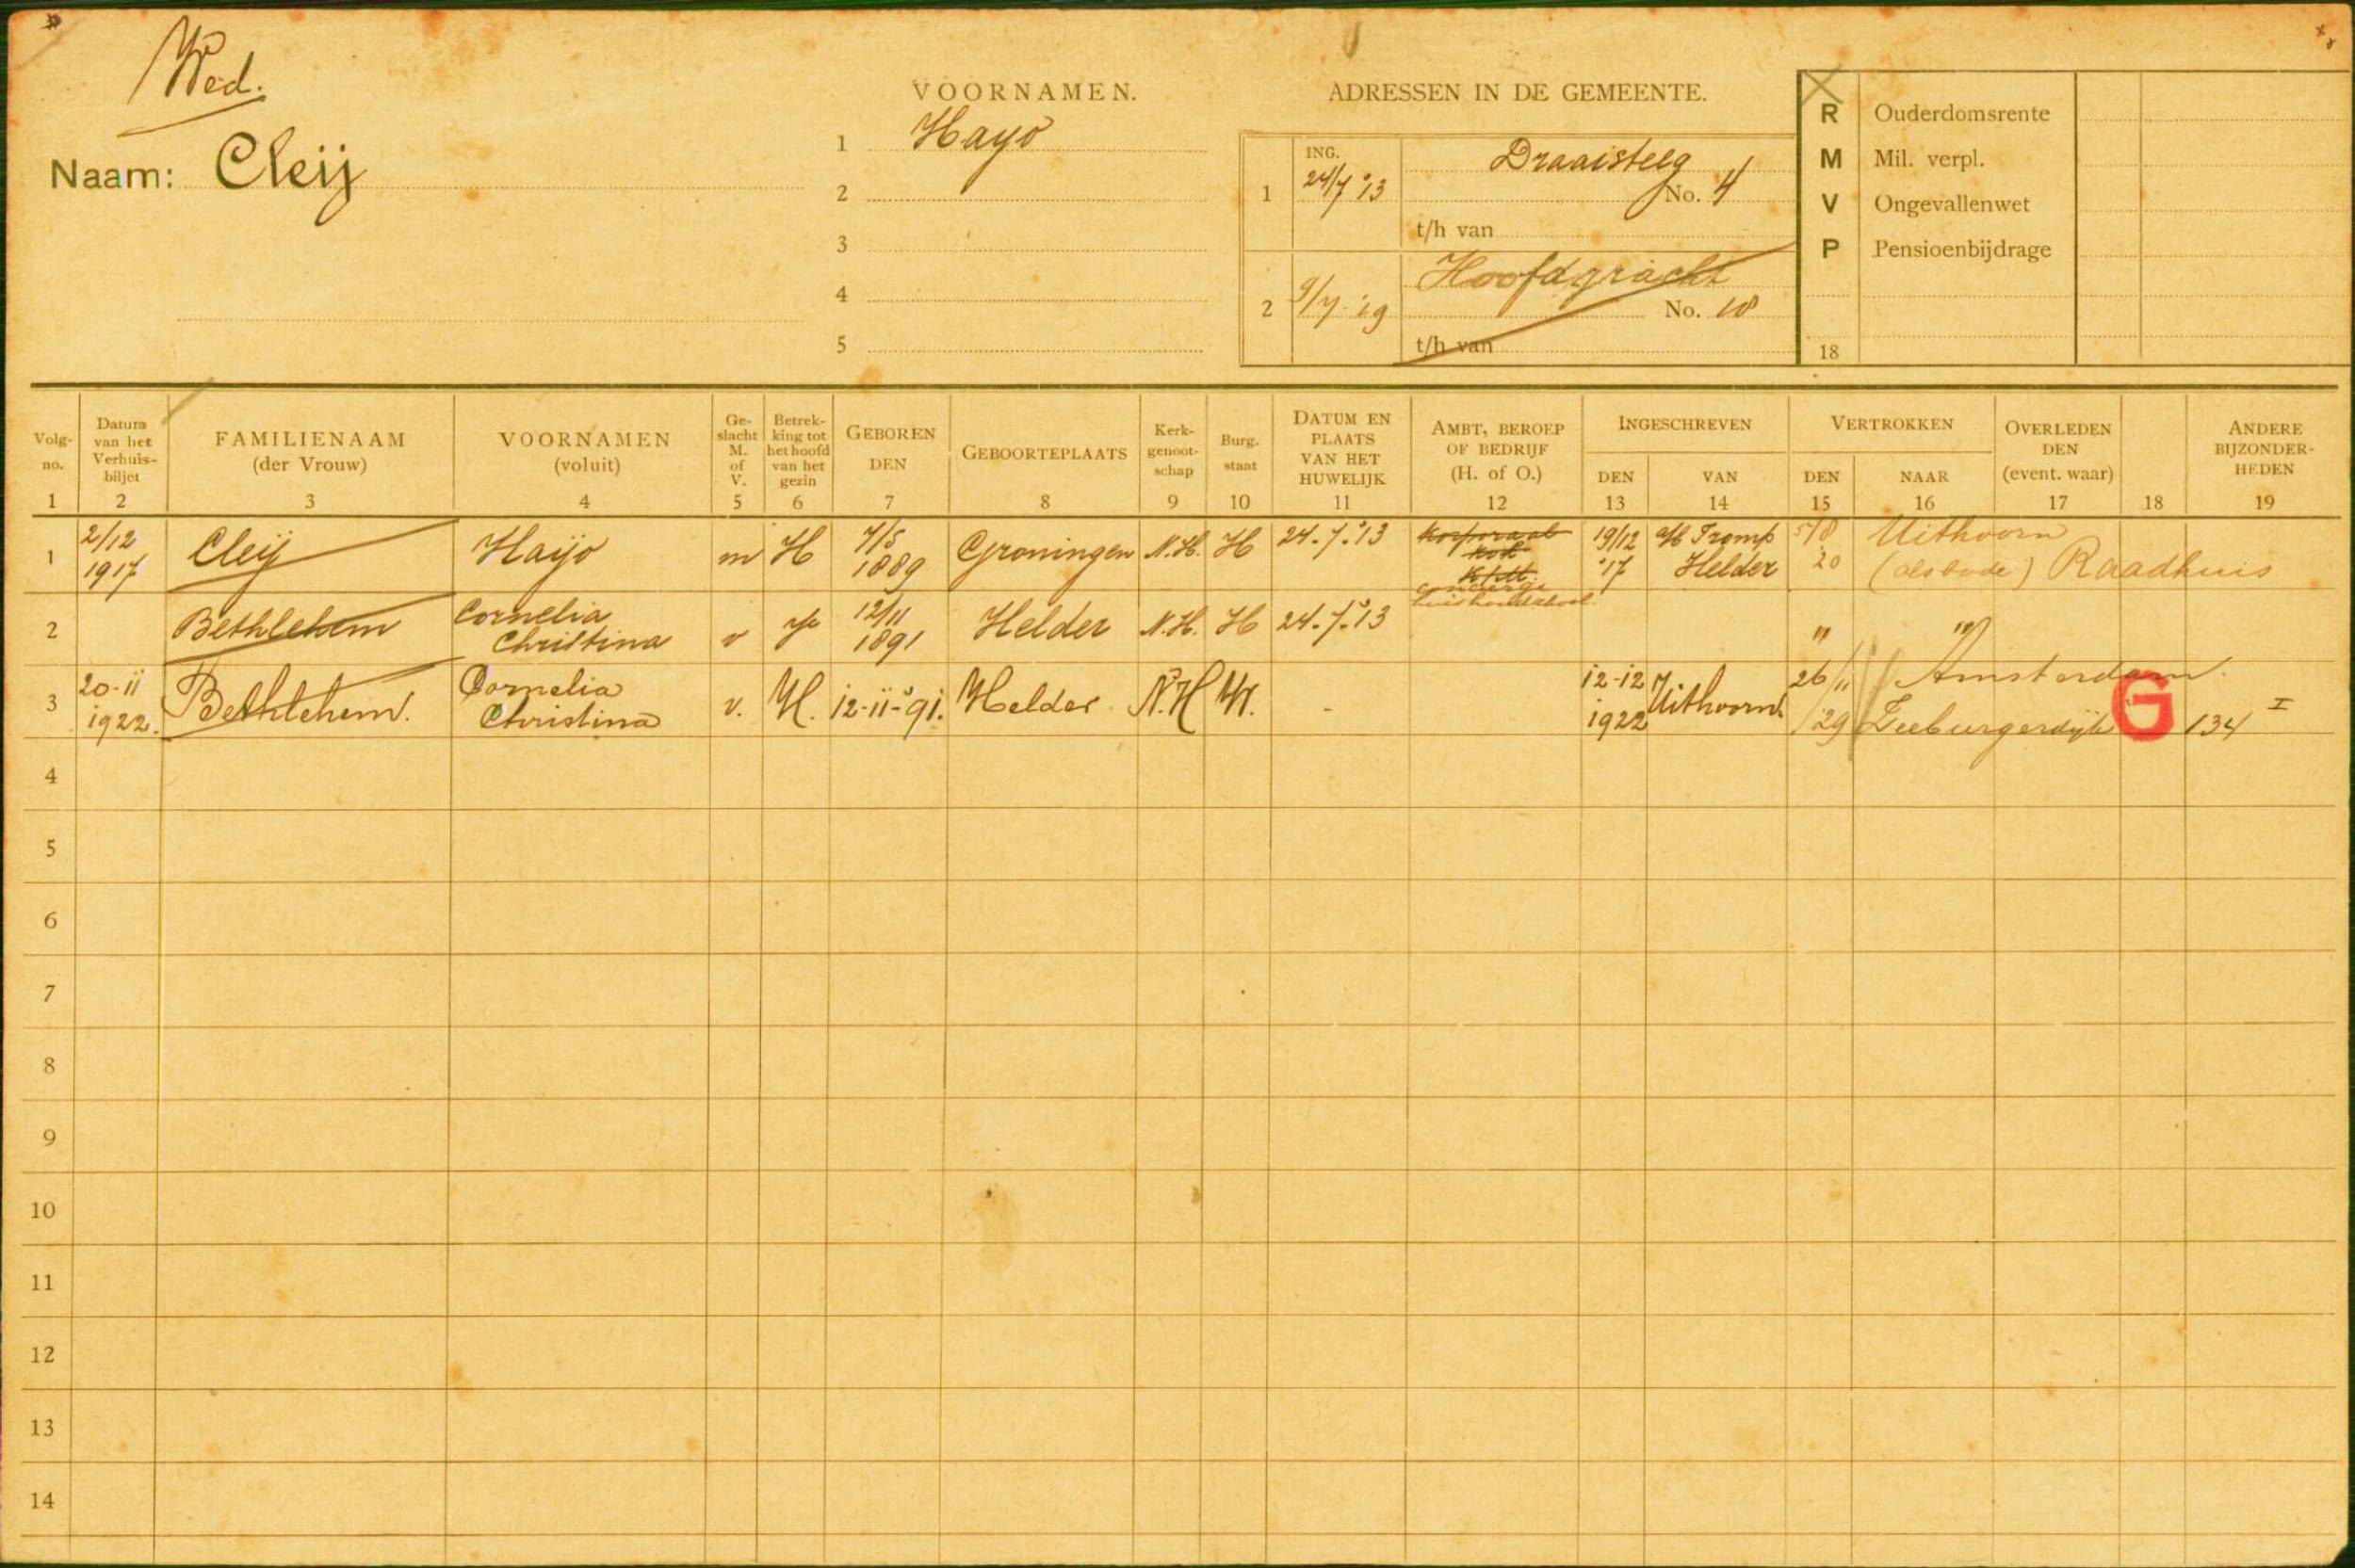 Wed.
Naam: Cleij
VOORNAMEN.
1 Hayo
2
3
4
5
ADRESSEN IN DE GEMEENTE.
1 ING. 24/7 '13 Draaisteeg No. 4
t/h van
2 9/7 '19 Hoofdgracht No. 18
t/h van
R Ouderdomsrente
M Mil. verpl.
V Ongevallenwet
P Pensioenbijdrage
18
Volg-no. 1
Datum van het Verhuis-biljet 2
FAMILIENAAM (der Vrouw) 3
VOORNAMEN (voluit) 4
Ge-slacht M. of V. 5
Betrek-king tot het hoofd van het gezin 6
GEBOREN DEN 7
GEBOORTEPLAATS 8
Kerk-genoot-schap 9
Burg. staat 10
DATUM EN PLAATS VAN HET HUWELIJK 11
AMBT, BEROEP OF BEDRIJF (H. of O.) 12
INGESCHREVEN DEN 13 VAN 14
VERTROKKEN DEN 15 NAAR 16
OVERLEDEN DEN (event. waar) 17
18
ANDERE BIJZONDER-HEDEN 19
1 2/12 1917 Cleij Haijo m H 7/5 1889 Groningen N.H. H 24.7.'13 Korporaal kok 19/12 '17 Tromp Helder 5/8 '20 Uithoorn (als bode) Raadhuis
2 Bethlehem Cornelia Christina v 12/11 1891 Helder N.H. H 24.7.'13 " "
3 20-11 1922. Bethlehem. Cornelia Christina v. H. 12-11-'91. Helder. N.H W. - 12-12 1922 Uithoorn. 26/11 /29 Amsterdam. Zeeburgerdijk G 134 I
4
5
6
7
8
9
10
11
12
13
14